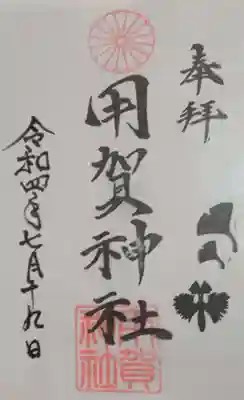 奉拝
用賀神社
令和四年七月十九日
用賀
神社